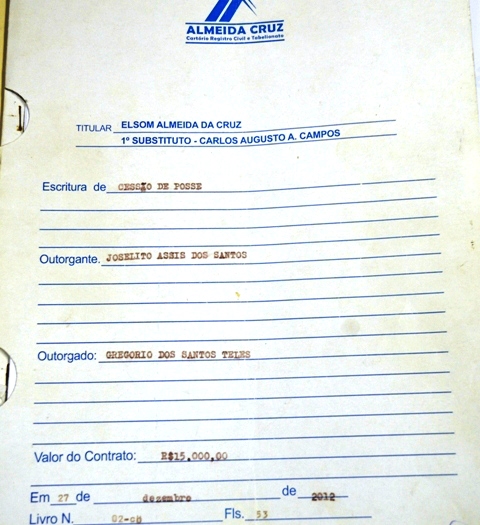 ALMEIDA CRUZ
Cartório Registro Civil e Tabelionato
TITULAR ELSOM ALMEIDA DA CRUZ
1º SUBSTITUTO - CARLOS AUGUSTO A. CAMPOS
Escritura de CESSÃO DE POSSE
Outorgante. JOSELITO ASSIS DOS SANTOS
Outorgado: GREGORIO DOS SANTOS TELES
Valor do Contrato: R$15.000,00
Em 27 de dezembro de 2012
Livro N. 02-cB Fls. 53